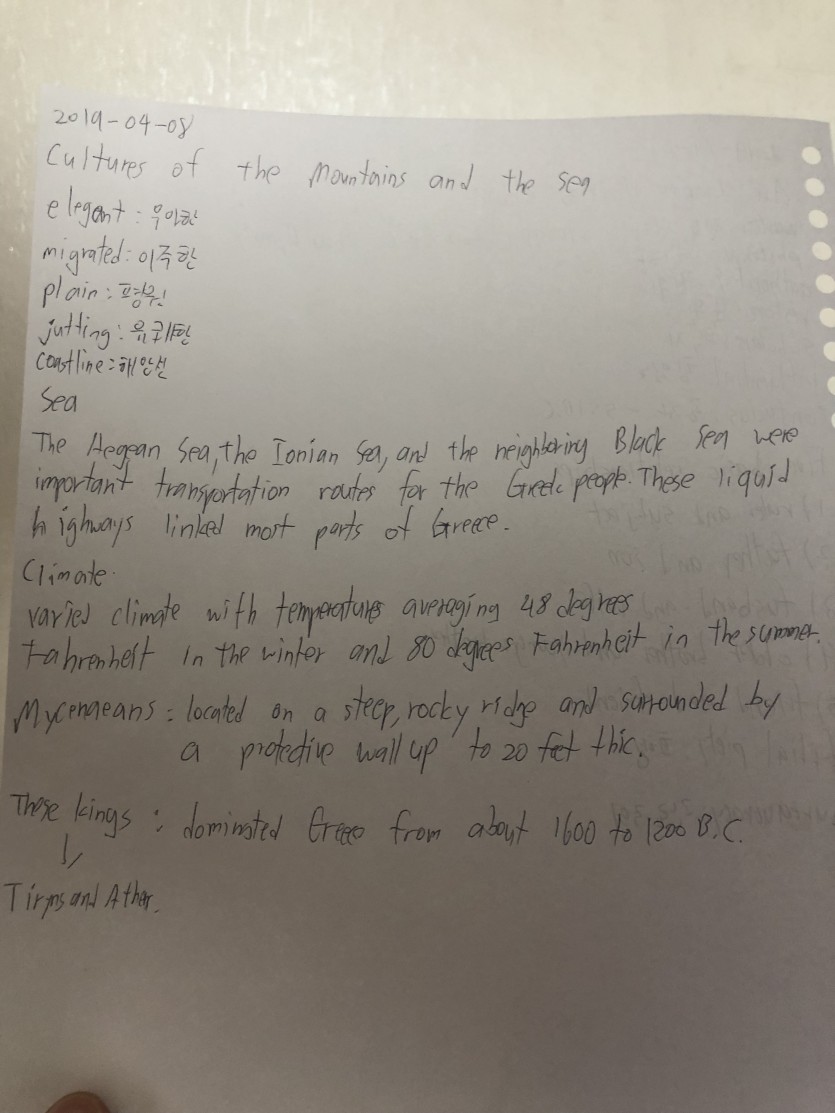 2019-04-08
Cultures of the Mountains and the sea
elegant : 우아한
migrated: 이주한
plain : 평원
jutting : 유쾌한
coastline : 해안선
Sea
The Aegean Sea, the Ionian Sea, and the neighboring Black Sea were
important transportation routes for the Greek people. These liquid
highways linked most parts of Greece.
Climate.
varied climate with temperatures averaging 48 degrees
Fahrenheit in the winter and 80 degrees Fahrenheit in the summer.
Mycenaeans : located on a steep, rocky ridge and surrounded by
a protective wall up to 20 feet thic.
These kings : dominated Greece from about 1600 to 1200 B.C.
Tiryns and Athen.